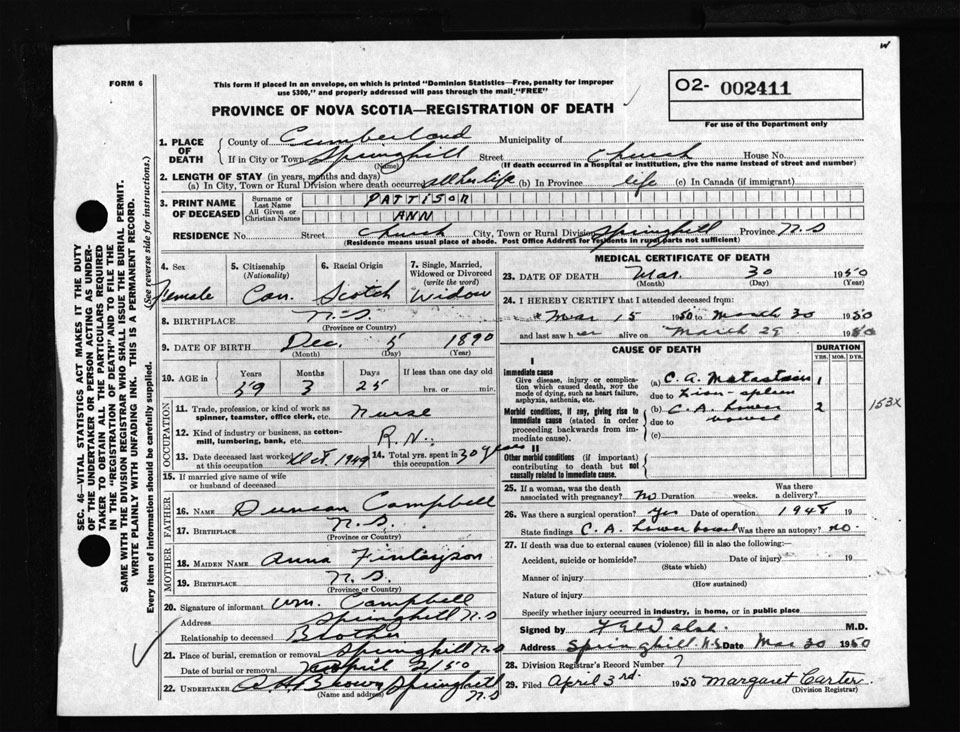 W
FORM 6
This form if placed in an envelope, on which is printed "Dominion Statistics—Free, penalty for improper
use $300," and properly addressed will pass through the mail "FREE"
O2- 002411
For use of the Department only
PROVINCE OF NOVA SCOTIA—REGISTRATION OF DEATH
SEC. 46—VITAL STATISTICS ACT MAKES IT THE DUTY
OF THE UNDERTAKER OR PERSON ACTING AS UNDER-
TAKER TO OBTAIN ALL THE PARTICULARS REQUIRED
IN THE "REGISTRATION OF DEATH" AND TO FILE THE
SAME WITH THE DIVISION REGISTRAR WHO SHALL ISSUE THE BURIAL PERMIT.
WRITE PLAINLY WITH UNFADING INK. THIS IS A PERMANENT RECORD.
Every item of information should be carefully supplied. (See reverse side for instructions.)
1. PLACE OF DEATH
County of Cumberland Municipality of
If in City or Town Springhill Street Church House No.
(Name) (If death occurred in a hospital or institution, give the name instead of street and number)
2. LENGTH OF STAY (in years, months and days)
(a) In City, Town or Rural Division where death occurred all her life (b) In Province life (c) In Canada (if immigrant)
3. PRINT NAME OF DECEASED
Surname or Last Name PATTISON
All Given or Christian Names ANN
RESIDENCE No. Street Church City, Town or Rural Division Springhill Province N.S
(Residence means usual place of abode. Post Office Address for residents in rural parts not sufficient)
4. Sex 5. Citizenship (Nationality) 6. Racial Origin 7. Single, Married, Widowed or Divorced (write the word)
Female Can. Scotch Widow
8. BIRTHPLACE N.S.
(Province or Country)
9. DATE OF BIRTH Dec. 5 1890
(Month) (Day) (Year)
10. AGE in Years Months Days If less than one day old
59 3 25 hrs. or min.
OCCUPATION
11. Trade, profession, or kind of work as spinner, teamster, office clerk, etc. Nurse
12. Kind of industry or business, as cotton-mill, lumbering, bank, etc. R.N.
13. Date deceased last worked at this occupation Oct. 1949 14. Total yrs. spent in this occupation 30 years
15. If married give name of wife or husband of deceased
FATHER
16. NAME Duncan Campbell
17. BIRTHPLACE N.S.
(Province or Country)
MOTHER
18. MAIDEN NAME Anna Finlayson
19. BIRTHPLACE N.S.
(Province or Country)
20. Signature of informant Wm. Campbell
Address Springhill N.S
Relationship to deceased Brother
21. Place of burial, cremation or removal Springhill N.S
Date of burial or removal April 2/50
22. UNDERTAKER Brown Springhill N.S
(Name and address)
MEDICAL CERTIFICATE OF DEATH
23. DATE OF DEATH Mar. 30 1950
(Month) (Day) (Year)
24. I HEREBY CERTIFY that I attended deceased from:
Mar 15 1950 to March 30 1950
and last saw her alive on March 29 1950
CAUSE OF DEATH
DURATION
YRS. MOS. DYS.
I
Immediate cause
Give disease, injury or complication which caused death, NOT the mode of dying, such as heart failure, asphyxia, asthenia, etc.
(a) C.A. Metastasis 1
due to spleen
Morbid conditions, if any, giving rise to immediate cause (stated in order proceeding backwards from immediate cause).
(b) C.A. Lower 2
due to bowel
(c)
153X
II
Other morbid conditions (if important) contributing to death but not causally related to immediate cause.
25. If a woman, was the death associated with pregnancy? No Duration weeks. Was there a delivery?
26. Was there a surgical operation? Yes Date of operation 1948 19
State findings C.A. Lower bowel Was there an autopsy? no.
27. If death was due to external causes (violence) fill in also the following:—
Accident, suicide or homicide? Date of injury 19
(State which)
Manner of injury
(How sustained)
Nature of injury
Specify whether injury occurred in industry, in home, or in public place
Signed by Walsh. M.D.
Address Springhill N.S. Date Mar 30 1950
28. Division Registrar's Record Number 7
29. Filed April 3rd. 1950 Margaret Carter
(Division Registrar)